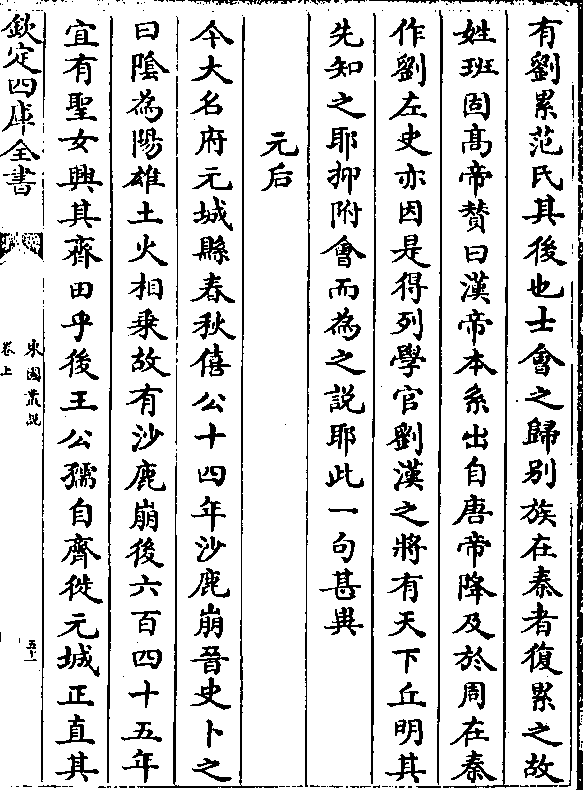 有劉累范氏其後也士會之歸别族在秦者復累之故
姓班固髙帝賛曰漢帝本系出自唐帝降及於周在秦
作劉左史亦因是得列學官劉漢之將有天下丘明其
先知之耶抑附會而為之説耶此一句甚異
元后
今大名府元城縣春秋僖公十四年沙鹿崩晉史卜之
曰隂為陽雄土火相乗故有沙鹿崩後六百四十五年
宜有聖女興其齊田乎後王公孺自齊徙元城正直其
欽定四庫全書
東園叢説
卷上